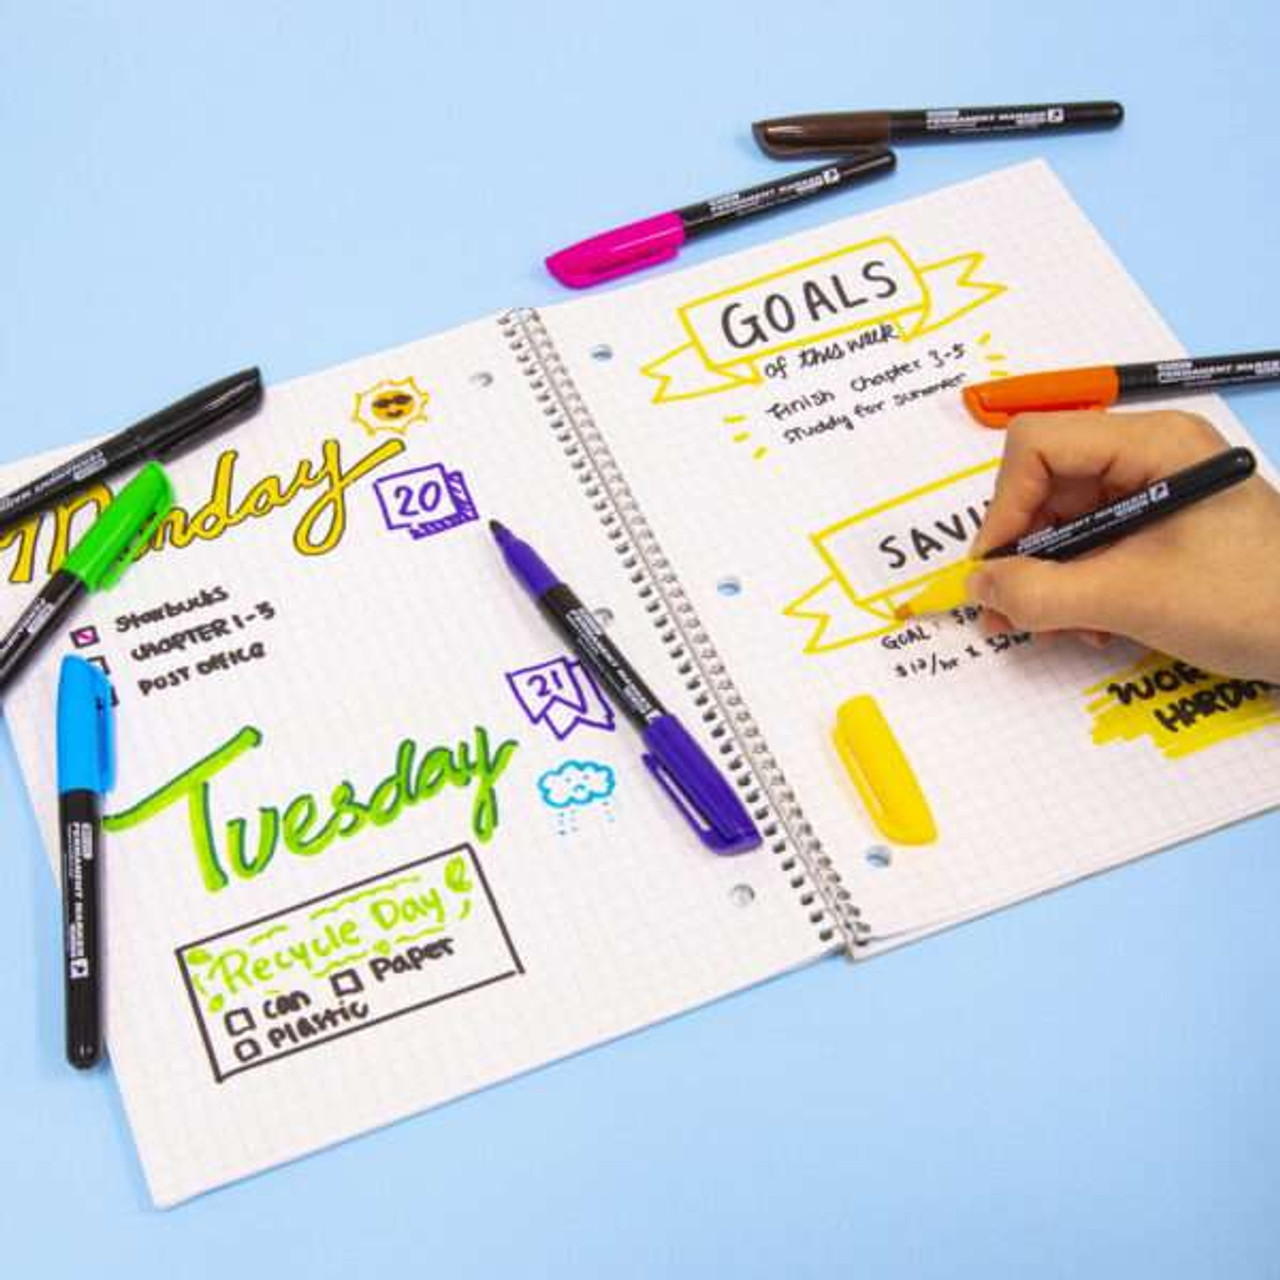 Monday
20
Starbucks
CHAPTER 1-3
POST OFFICE
21
Tuesday
Recycle Day
can Paper
Plastic
GOALS
of this week
Finish Chapter 3-5
Studdy for summer
SAVI
GOAL:
$12/hr x
WOR
HARD
PERMANENT MARKER
PERMANENT MARKER
PERMANENT MARKER
PERMANENT MARKER
PERMANENT MARKER